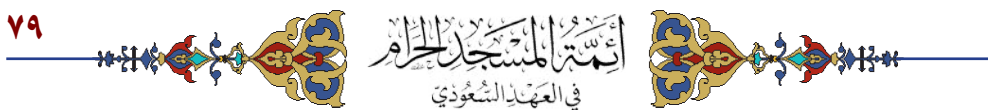 ٧٩
أَئِمَّةُ المَسْجِدِ الحَرَامِ
في العَهْدِ السُّعُوْدِيّ